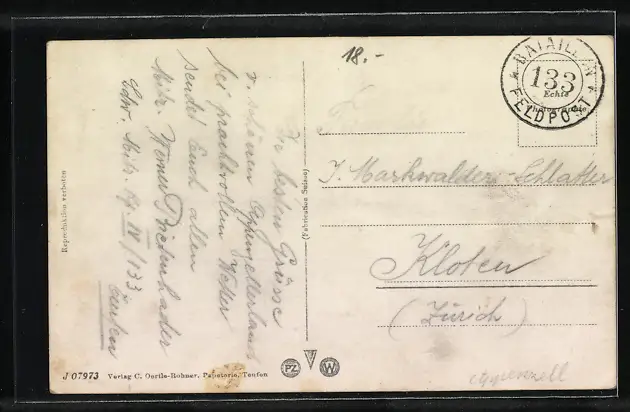 18.-
BATAILLON
133
FELDPOST
Echte
Photographie
Die besten Grüsse
v. schönen Appenzellerland
bei prachtvollem Wetter
sendet Euch allen
Mitr. Werner
Mitr. Kp. IV/133
Teufen
J. Markwalder-Schlatter
Kloten
(Zürich)
Reproduktion verboten
(Fabrication Suisse)
J 07973 Verlag C. Oertle-Rohner, Papeterie, Teufen
PZ
W
Appenzell